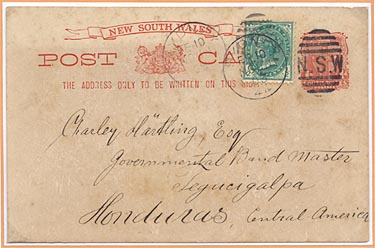 NEW SOUTH WALES
POST CA
THE ADDRESS ONLY TO BE WRITTEN ON THIS SIDE
N.S.W
Charley Härtling Esq
Governmental Band Master
Tegucigalpa
Honduras, Central America